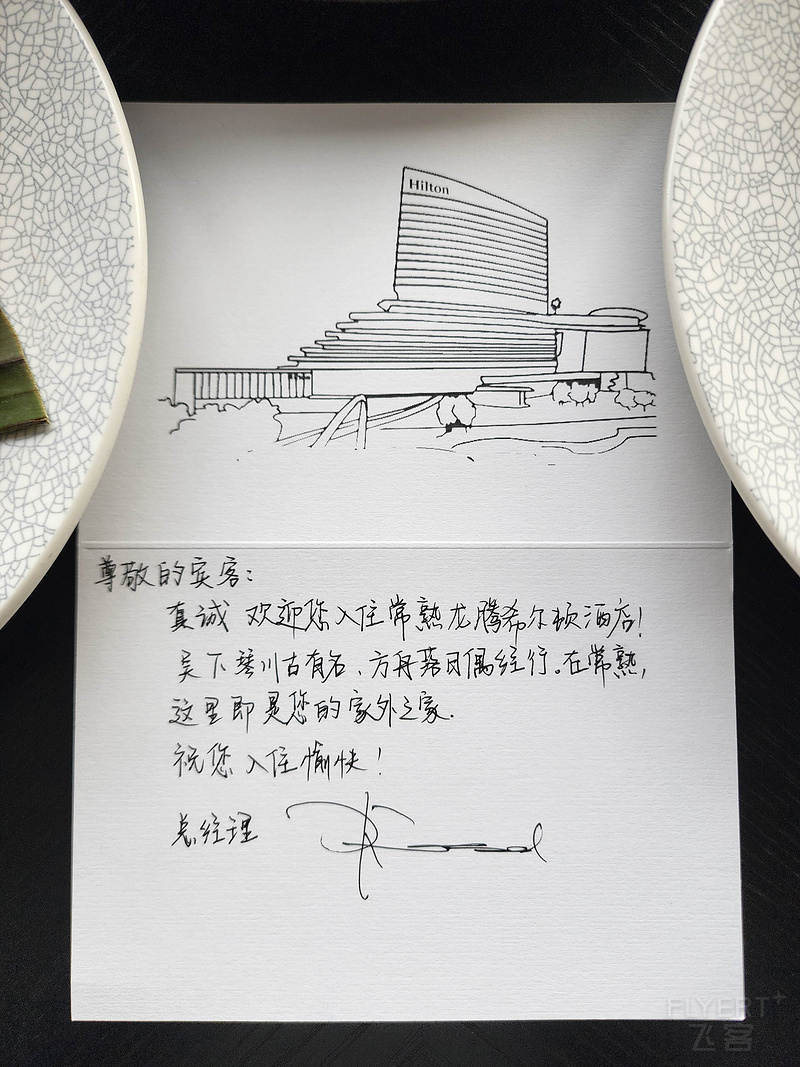 Hilton
尊敬的宾客：
真诚 欢迎您入住常熟龙腾希尔顿酒店！
吴下琴川古有名、方舟落日偶经行。在常熟，
这里即是您的家外之家.
祝您入住愉快！
总经理
FLYERT+
飞客